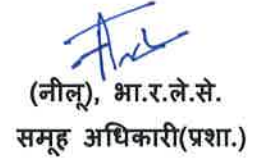 (नीलू), भा.र.ले.से.
समूह अधिकारी(प्रशा.)